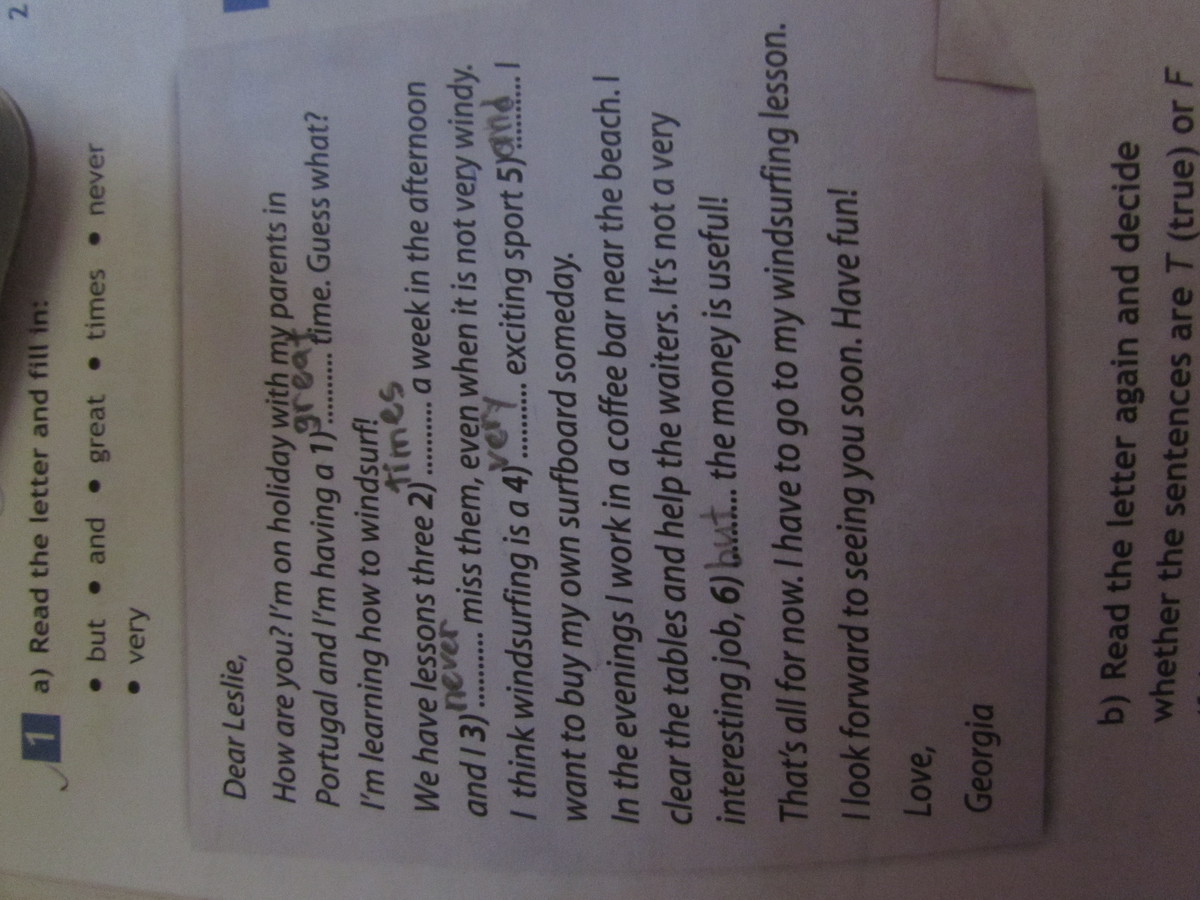 2
1 a) Read the letter and fill in:
• but • and • great • times • never
• very
Dear Leslie,
How are you? I'm on holiday with my parents in
Portugal and I'm having a 1) great time. Guess what?
I'm learning how to windsurf!
We have lessons three 2) times a week in the afternoon
and I 3) never miss them, even when it is not very windy.
I think windsurfing is a 4) very exciting sport 5) and I
want to buy my own surfboard someday.
In the evenings I work in a coffee bar near the beach. I
clear the tables and help the waiters. It's not a very
interesting job, 6) but the money is useful!
That's all for now. I have to go to my windsurfing lesson.
I look forward to seeing you soon. Have fun!
Love,
Georgia
b) Read the letter again and decide
whether the sentences are T (true) or F